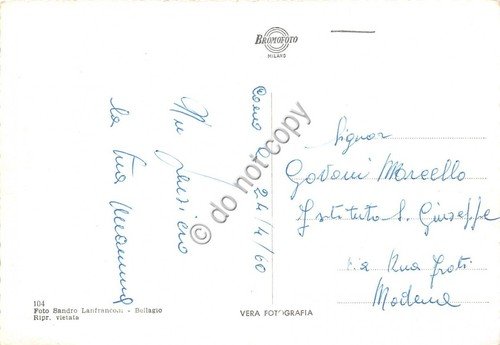 BROMOFOTO
MILANO
Como 24/4/60
Un pensiero
la tua mamma
Signor
Govoni Marcello
Istituto S. Giuseppe
via Rua Frati
Modena
104
Foto Sandro Lanfranconi - Bellagio
Ripr. vietata
VERA FOTOGRAFIA
do not copy